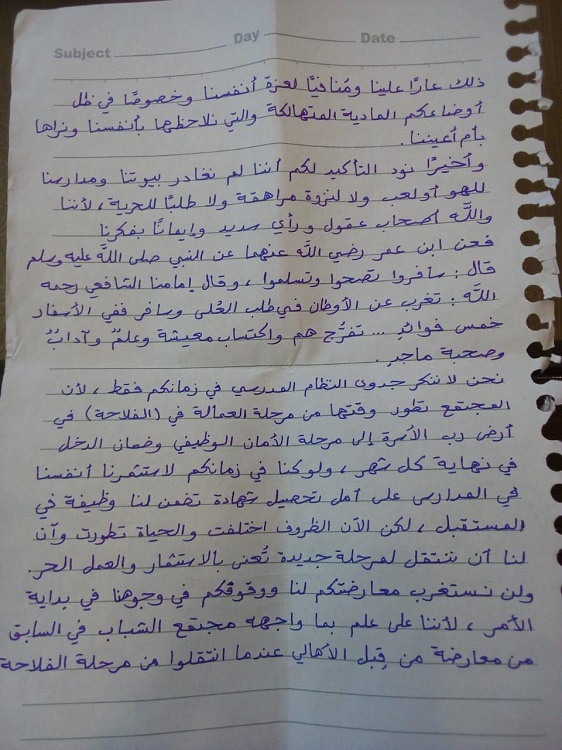 Subject Day Date
ذلك عارًا علينا ومُنافيًا لعزة أنفسنا وخصوصًا في ظل
أوضاعكم المادية المتهالكة والتي نلاحظها بأنفسنا ونراها
بأم أعيننا.
وأخيرًا نود التأكيد لكم أننا لم نغادر بيوتنا ومدارسنا
للهو أو لعب ولا لنزوة مراهقة ولا طلبًا للحرية، لأننا
والله أصحاب عقول ورأي سديد وإيمانًا بفكرنا
فعن ابن عمر رضي الله عنهما عن النبي صلى الله عليه وسلم
قال: سافروا تصحوا وتسلموا، وقال إمامنا الشافعي رحمه
الله: تغرب عن الأوطان في طلب العُلى وسافر ففي الأسفار
خمس فوائدٍ ... تفرُّج هم واكتساب معيشة وعلمٌ وآدابٌ
وصحبة ماجدِ.
نحن لا ننكر جدوى النظام المدرسي في زمانكم فقط، لأن
المجتمع تطور وقتها من مرحلة العمالة في (الفلاحة) في
أرض رب الأسرة إلى مرحلة الأمان الوظيفي وضمان الدخل
في نهاية كل شهر، ولو كنا في زمانكم لاستثمرنا أنفسنا
في المدارس على أمل تحصيل شهادة تضمن لنا وظيفة في
المستقبل، لكن الآن الظروف اختلفت والحياة تطورت وآن
لنا أن ننتقل لمرحلة جديدة تُعنى بالاستثمار والعمل الحر.
ولن نستغرب معارضتكم لنا ووقوفكم في وجوهنا في بداية
الأمر، لأننا على علم بما واجهه مجتمع الشباب في السابق
من معارضة من قِبل الأهالي عندما انتقلوا من مرحلة الفلاحة